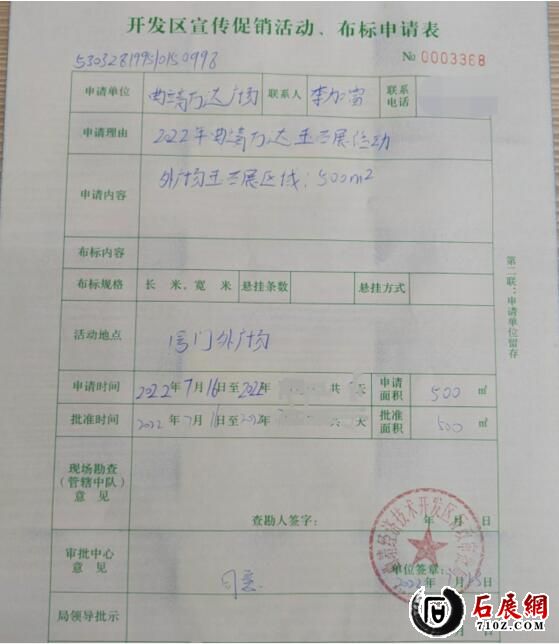 开发区宣传促销活动、布标申请表
No 0003368
申请单位 曲靖万达广场 联系人 李加富 联系电话
申请理由 2022年曲靖万达玉石展活动
申请内容 外广场玉石展区域：500m²
布标内容
布标规格 长 米，宽 米 悬挂条数 悬挂方式
活动地点 门外广场
申请时间 2022年7月16日至2022年 共 天 申请面积 500 ㎡
批准时间 2022年7月16日至2022年 共 天 批准面积 500 ㎡
现场勘查（管辖中队）意见
查勘人签字： 年 月 日
审批中心意见 同意
单位签章： 2022
局领导批示
第二联：申请单位留存
石展网
71OZ.COM